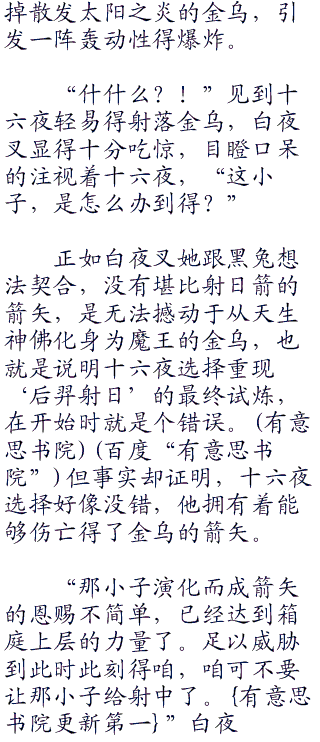 掉散发太阳之炎的金乌，引
发一阵轰动性得爆炸。
“什什么？！”见到十
六夜轻易得射落金乌，白夜
叉显得十分吃惊，目瞪口呆
的注视着十六夜，“这小
子，是怎么办到得？”
正如白夜叉她跟黑兔想
法契合，没有堪比射日箭的
箭矢，是无法撼动于从天生
神佛化身为魔王的金乌，也
就是说明十六夜选择重现
‘后羿射日’的最终试炼，
在开始时就是个错误。(有意
思书院)(百度“有意思书
院”)但事实却证明，十六夜
选择好像没错，他拥有着能
够伤亡得了金乌的箭矢。
“那小子演化而成箭矢
的恩赐不简单，已经达到箱
庭上层的力量了。足以威胁
到此时此刻得咱，咱可不要
让那小子给射中了。{有意思
书院更新第一}”白夜